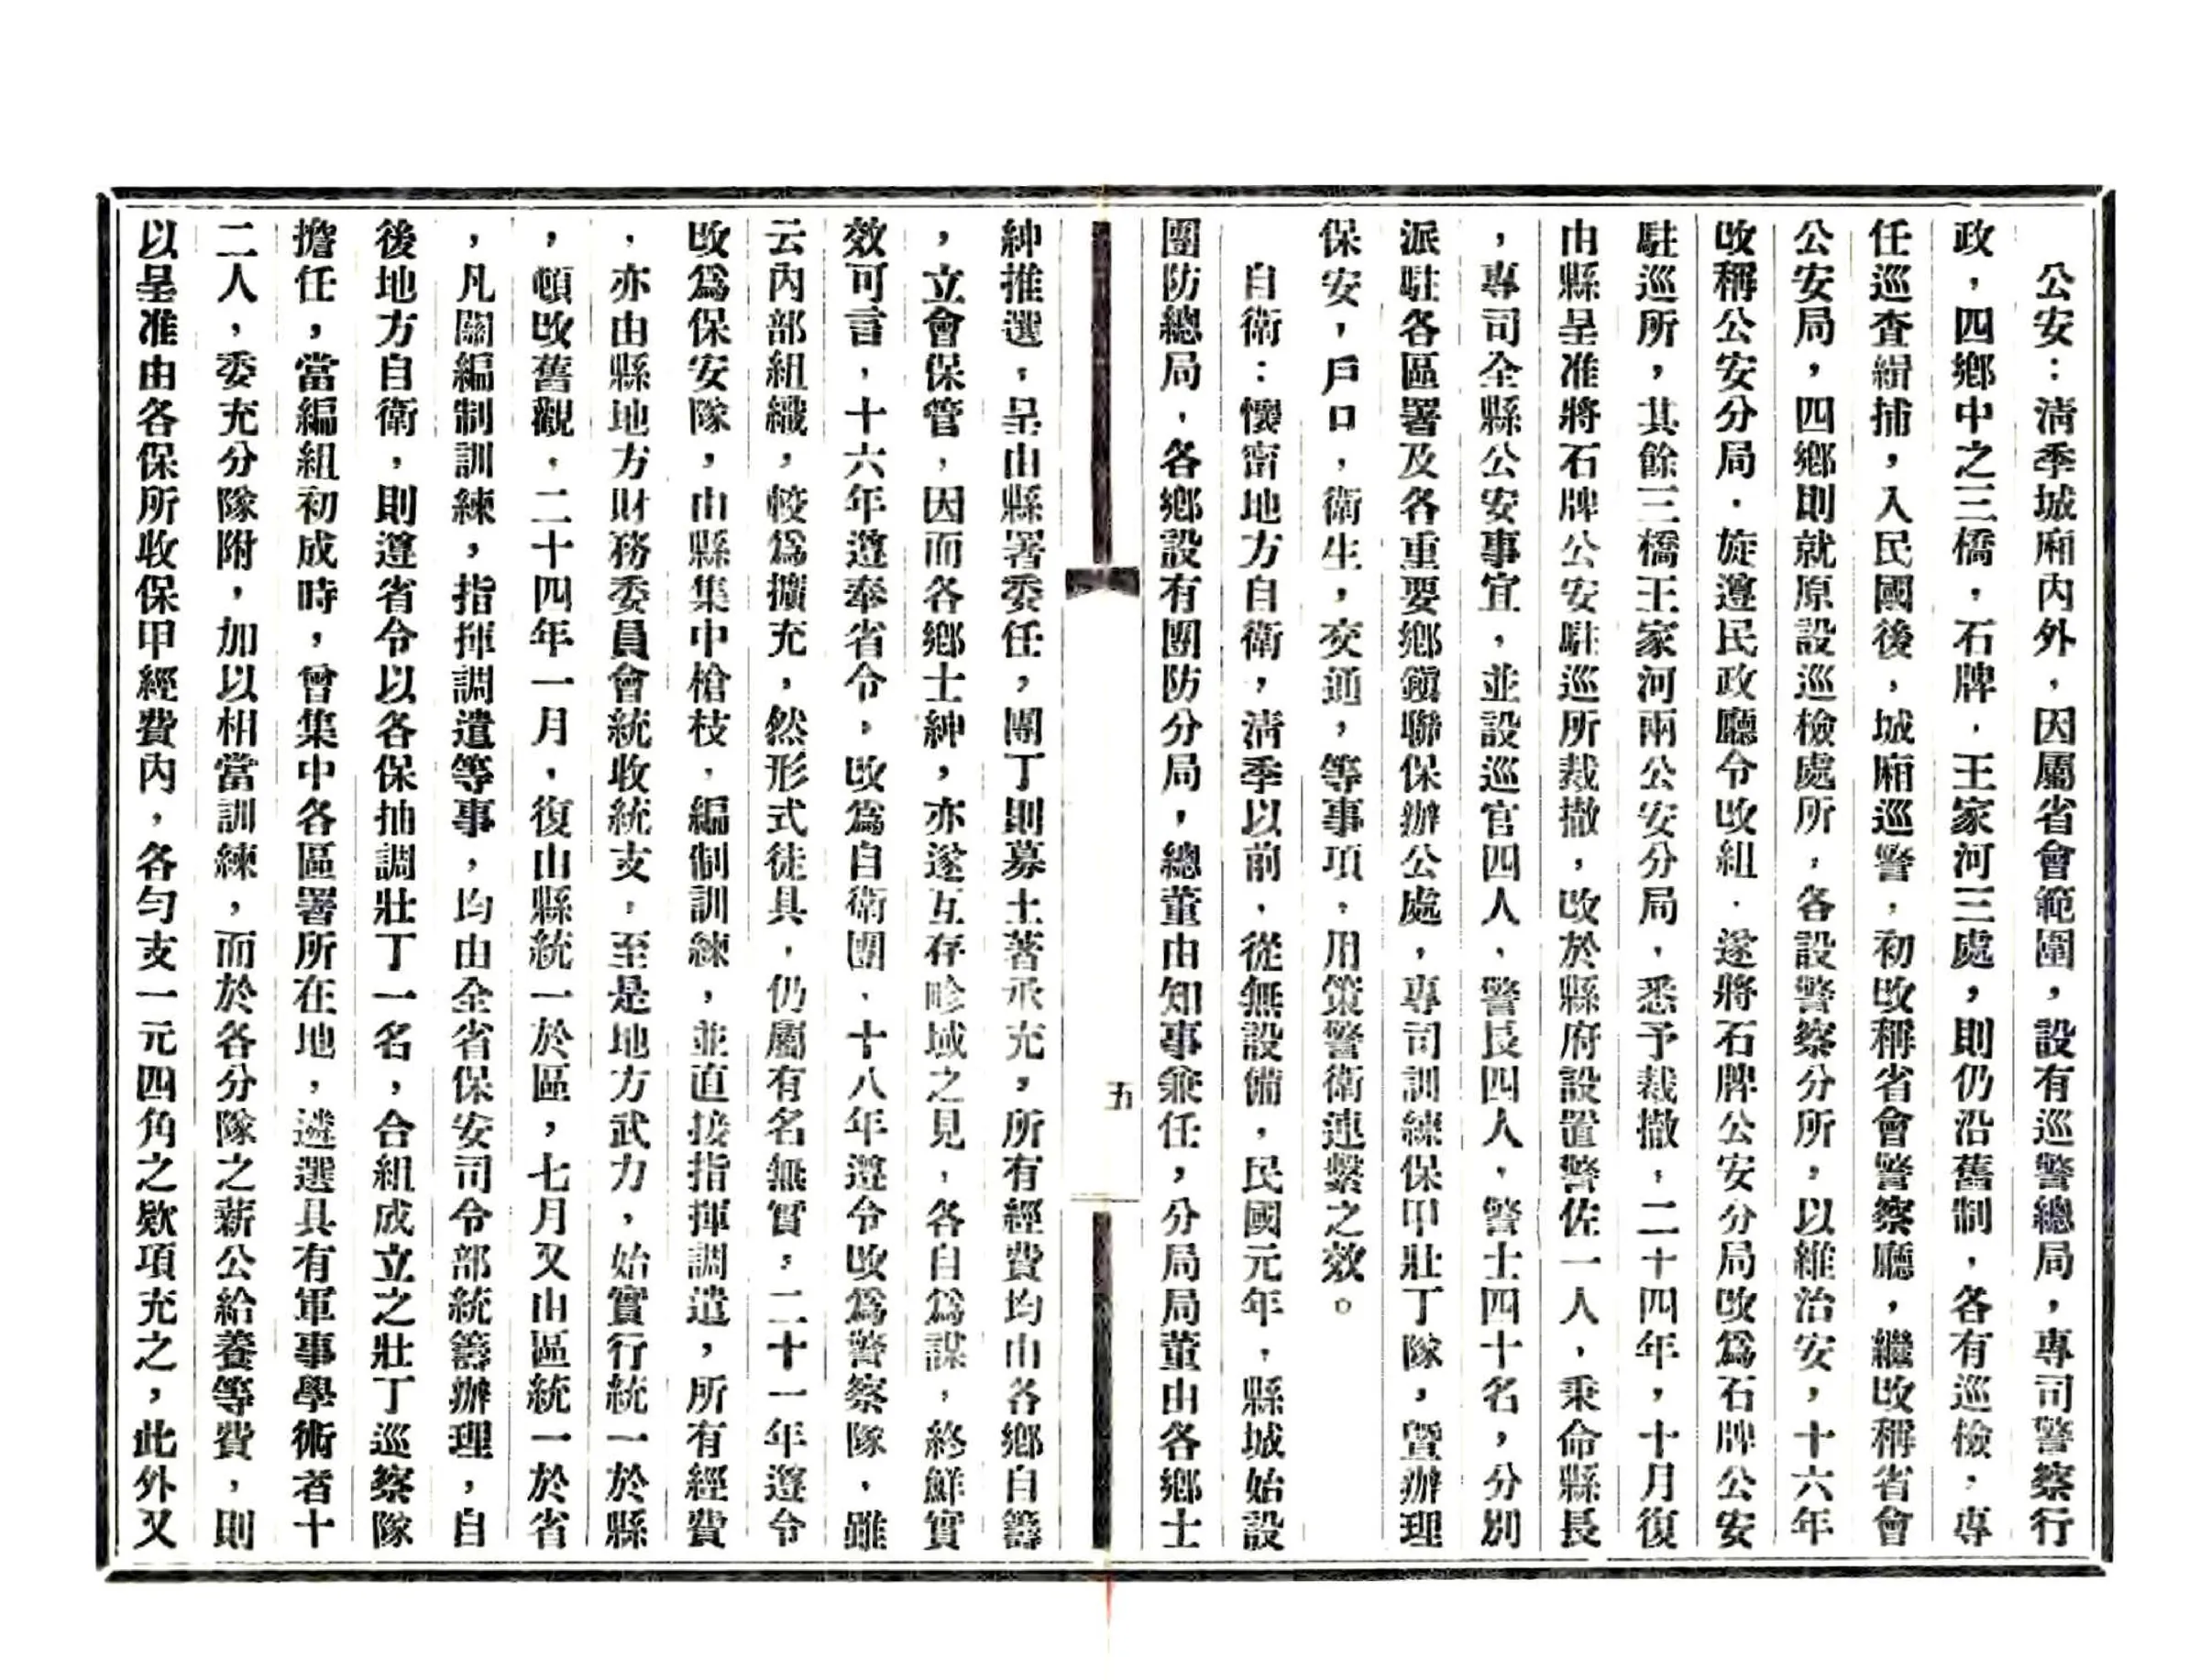 公安：淸季城廂內外，因屬省會範圍，設有巡警總局，專司警察行
政，四鄉中之三橋，石牌，王家河三處，則仍沿舊制，各有巡檢，專
任巡查緝捕，入民國後，城廂巡警，初改稱省會警察廳，繼改稱省會
公安局，四鄉則就原設巡檢處所，各設警察分所，以維治安，十六年
改稱公安分局，旋遵民政廳令改組，遂將石牌公安分局改爲石牌公安
駐巡所，其餘三橋王家河兩公安分局，悉予裁撤，二十四年，十月復
由縣呈准將石牌公安駐巡所裁撤，改於縣府設置警佐一人，秉命縣長
，專司全縣公安事宜，並設巡官四人，警長四人，警士四十名，分別
派駐各區署及各重要鄉鎭聯保辦公處，專司訓練保甲壯丁隊，暨辦理
保安，戶口，衛生，交通，等事項，用策警衛連繫之效。
自衛：懷甯地方自衛，淸季以前，從無設備，民國元年，縣城始設
團防總局，各鄉設有團防分局，總董由知事兼任，分局局董由各鄉士
五
紳推選，呈由縣署委任，團丁則募土著承充，所有經費均由各鄉自籌
，立會保管，因而各鄉士紳，亦遂互存畛域之見，各自爲謀，終鮮實
效可言，十六年遵奉省令，改爲自衛團，十八年遵令改爲警察隊，雖
云內部組織，較爲擴充，然形式徒具，仍屬有名無實，二十一年遵令
改爲保安隊，由縣集中槍枝，編制訓練，並直接指揮調遣，所有經費
，亦由縣地方財務委員會統收統支，至是地方武力，始實行統一於縣
，頓改舊觀，二十四年一月，復由縣統一於區，七月又由區統一於省
，凡關編制訓練，指揮調遣等事，均由全省保安司令部統籌辦理，自
後地方自衛，則遵省令以各保抽調壯丁一名，合組成立之壯丁巡察隊
擔任，當編組初成時，曾集中各區署所在地，遴選具有軍事學術者十
二人，委充分隊附，加以相當訓練，而於各分隊之薪公給養等費，則
以呈准由各保所收保甲經費內，各勻支一元四角之欵項充之，此外又